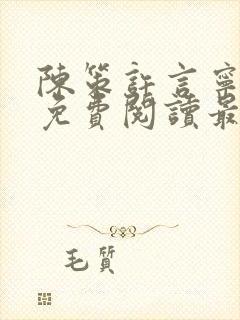 陳策許言寧
免費閱讀最
毛質